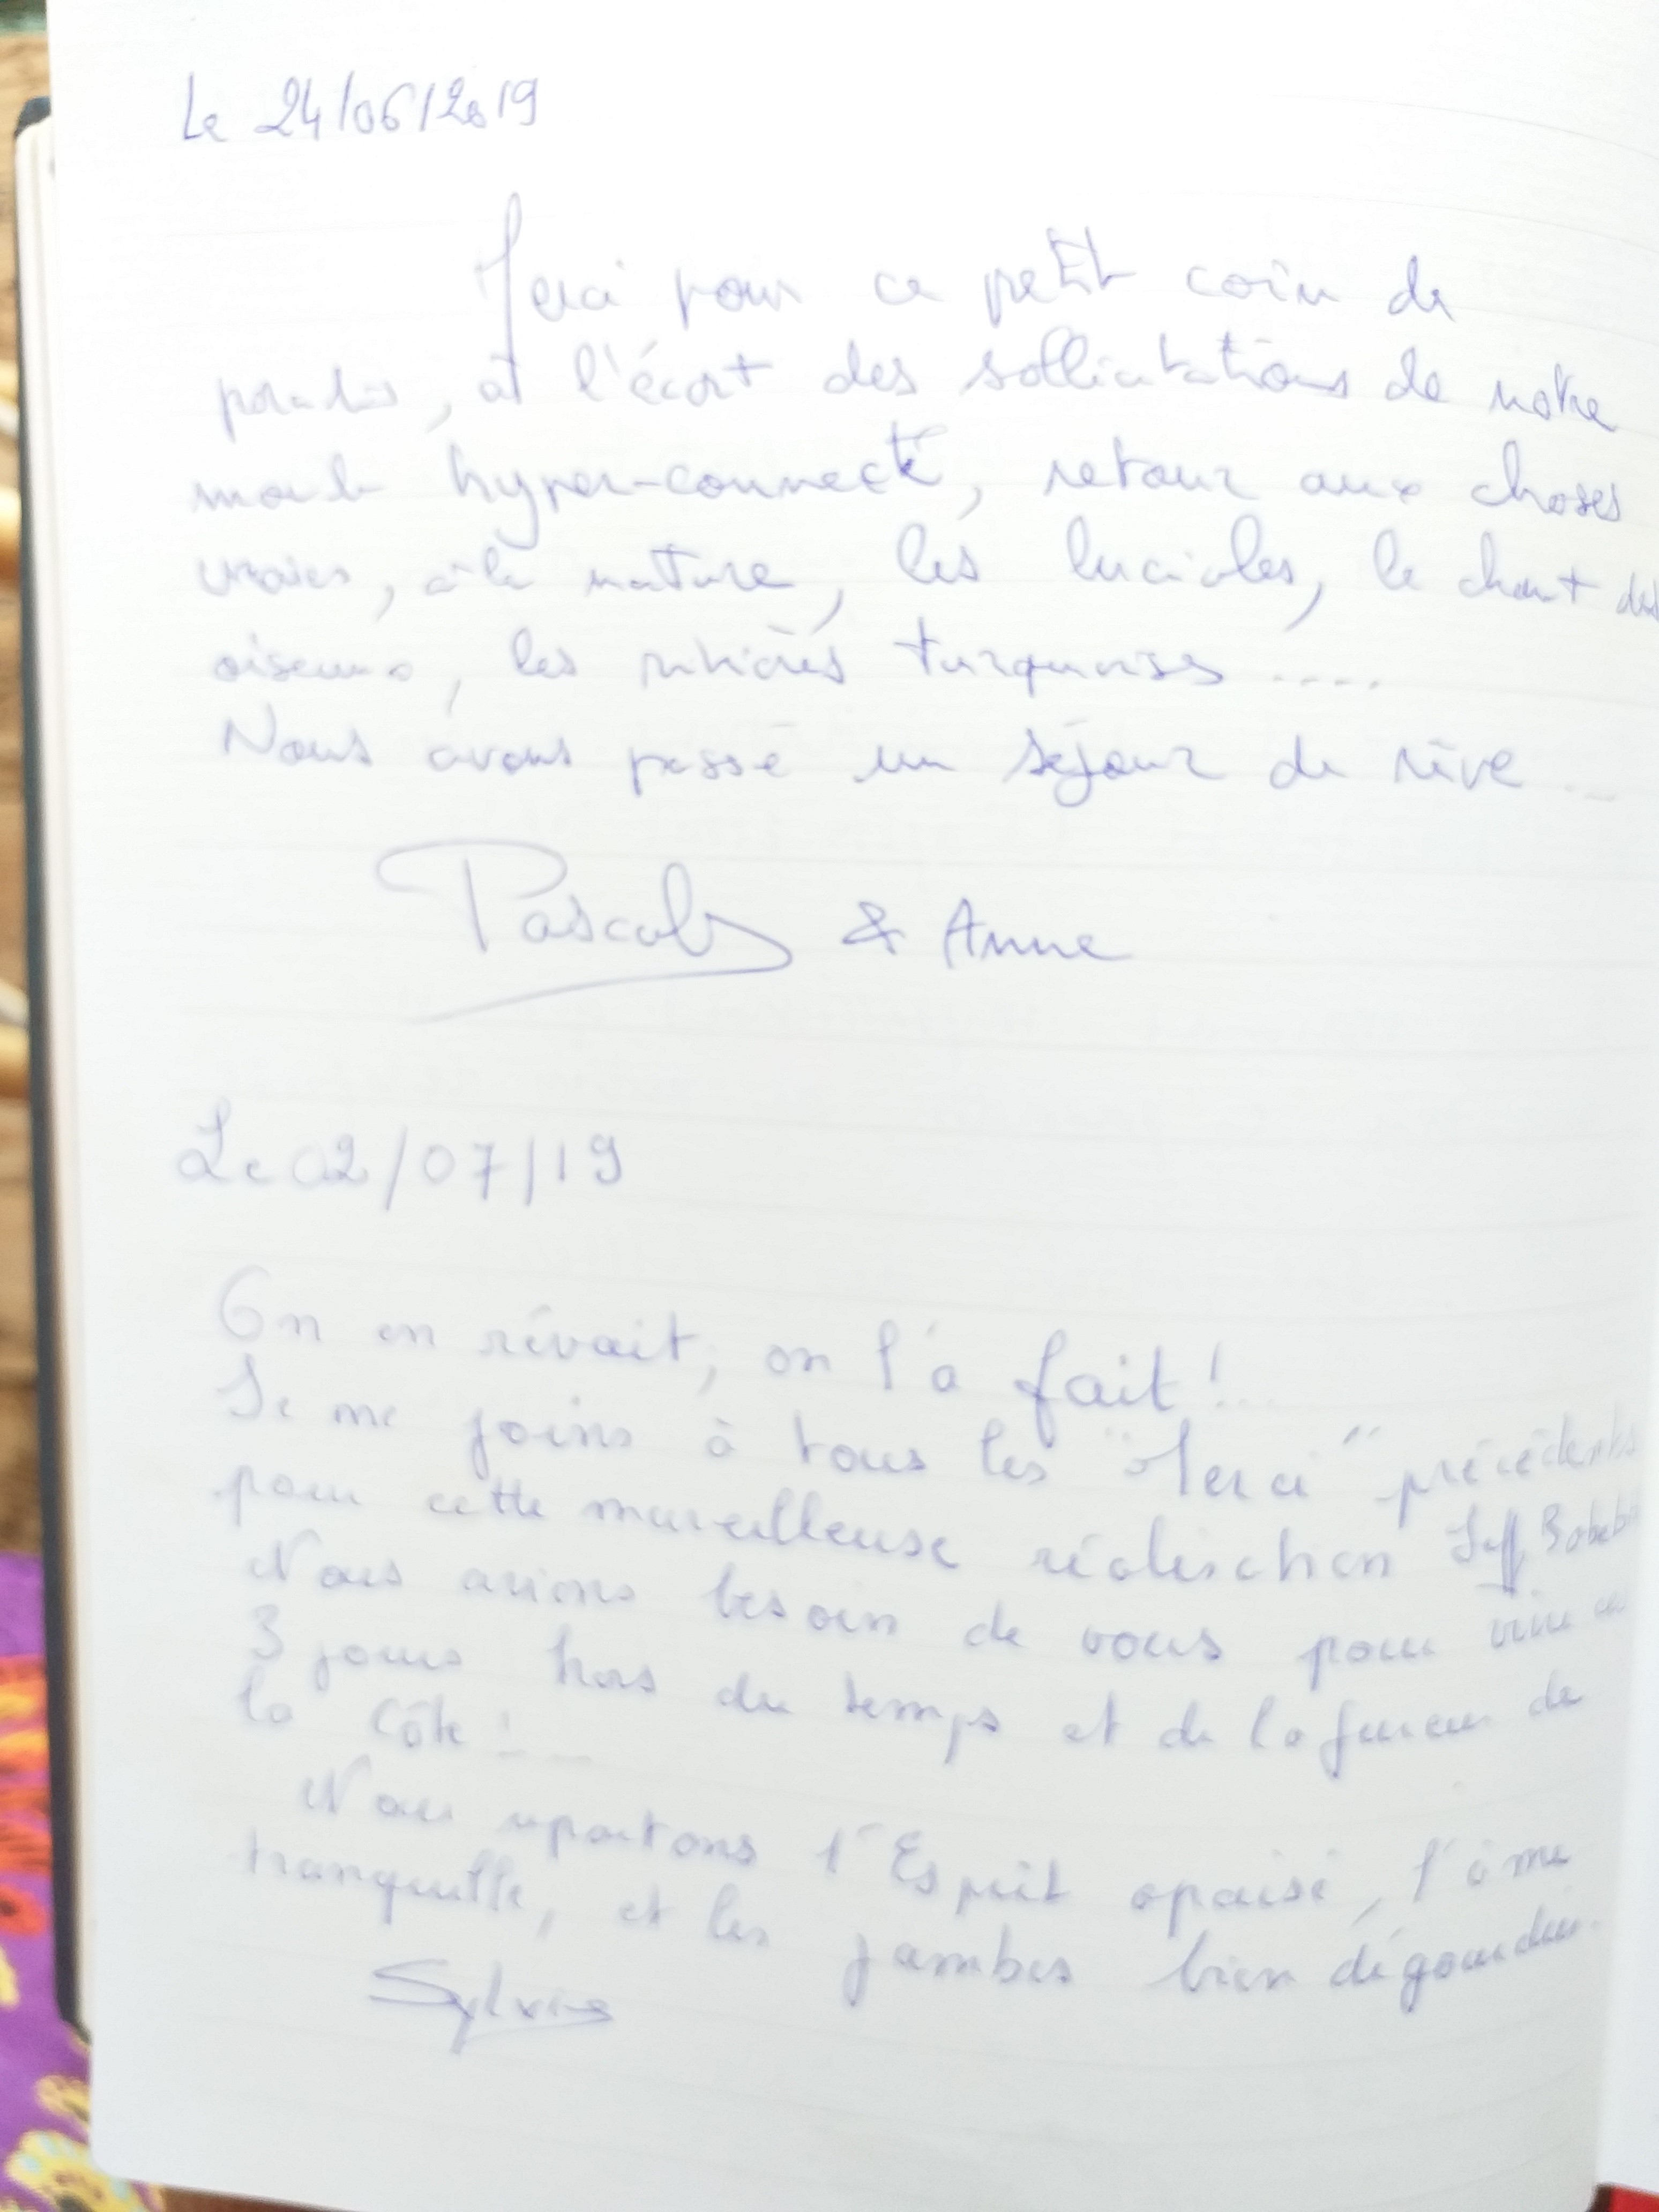 Le 24/06/2019
Merci pour ce petit coin de
paradis, à l'écart des sollicitations de notre
monde hyper-connecté, retour aux choses
vraies, à la nature, les lucioles, le chant des
oiseaux, les rivières turquoises ....
Nous avons passé un séjour de rêve ...
Pascal & Anne
Le 02/07/19
On en rêvait, on l'a fait !...
Je me joins à tous les "Merci" précédents
pour cette merveilleuse réalisation
Nous avions besoin de vous pour vivre ces
3 jours hors du temps et de la fureur de
la Côte !...
Nous repartons l'Esprit apaisé, l'âme
tranquille, et les jambes bien dégourdies.
Sylvie